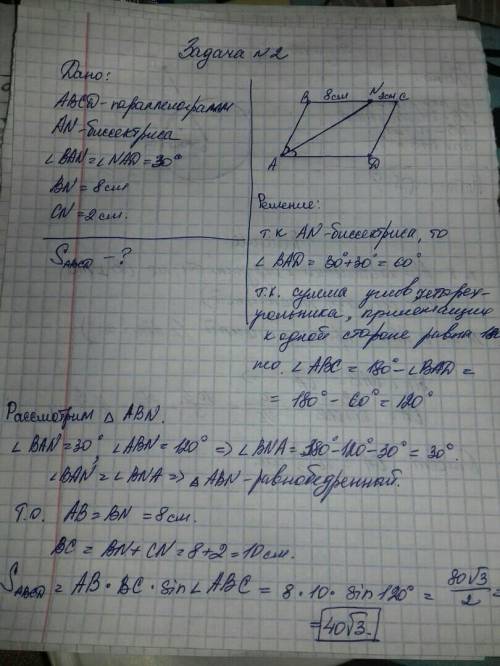 Задача №2
Дано:
ABCD - параллелограмм
AN - биссектриса
∠BAN = ∠NAD = 30°
BN = 8см
CN = 2см.
S ABCD - ?
B 8см N 2см C
A D
Решение:
т.к AN - биссектриса, то
∠BAD = 30°+30° = 60°
т.к. сумма углов четырех-
угольника, прилежащих
к одной стороне равны 180
то. ∠ABC = 180° - ∠BAD =
= 180° - 60° = 120°
Рассмотрим △ ABN.
∠BAN = 30°, ∠ABN = 120° => ∠BNA = 180° - 120° - 30° = 30°.
∠BAN = ∠BNA => △ABN - равнобедренный.
Т.О. AB = BN = 8см.
BC = BN + CN = 8 + 2 = 10см.
S ABCD = AB · BC · sin∠ABC = 8 · 10 · sin 120° = 80√3/2 =
= 40√3.